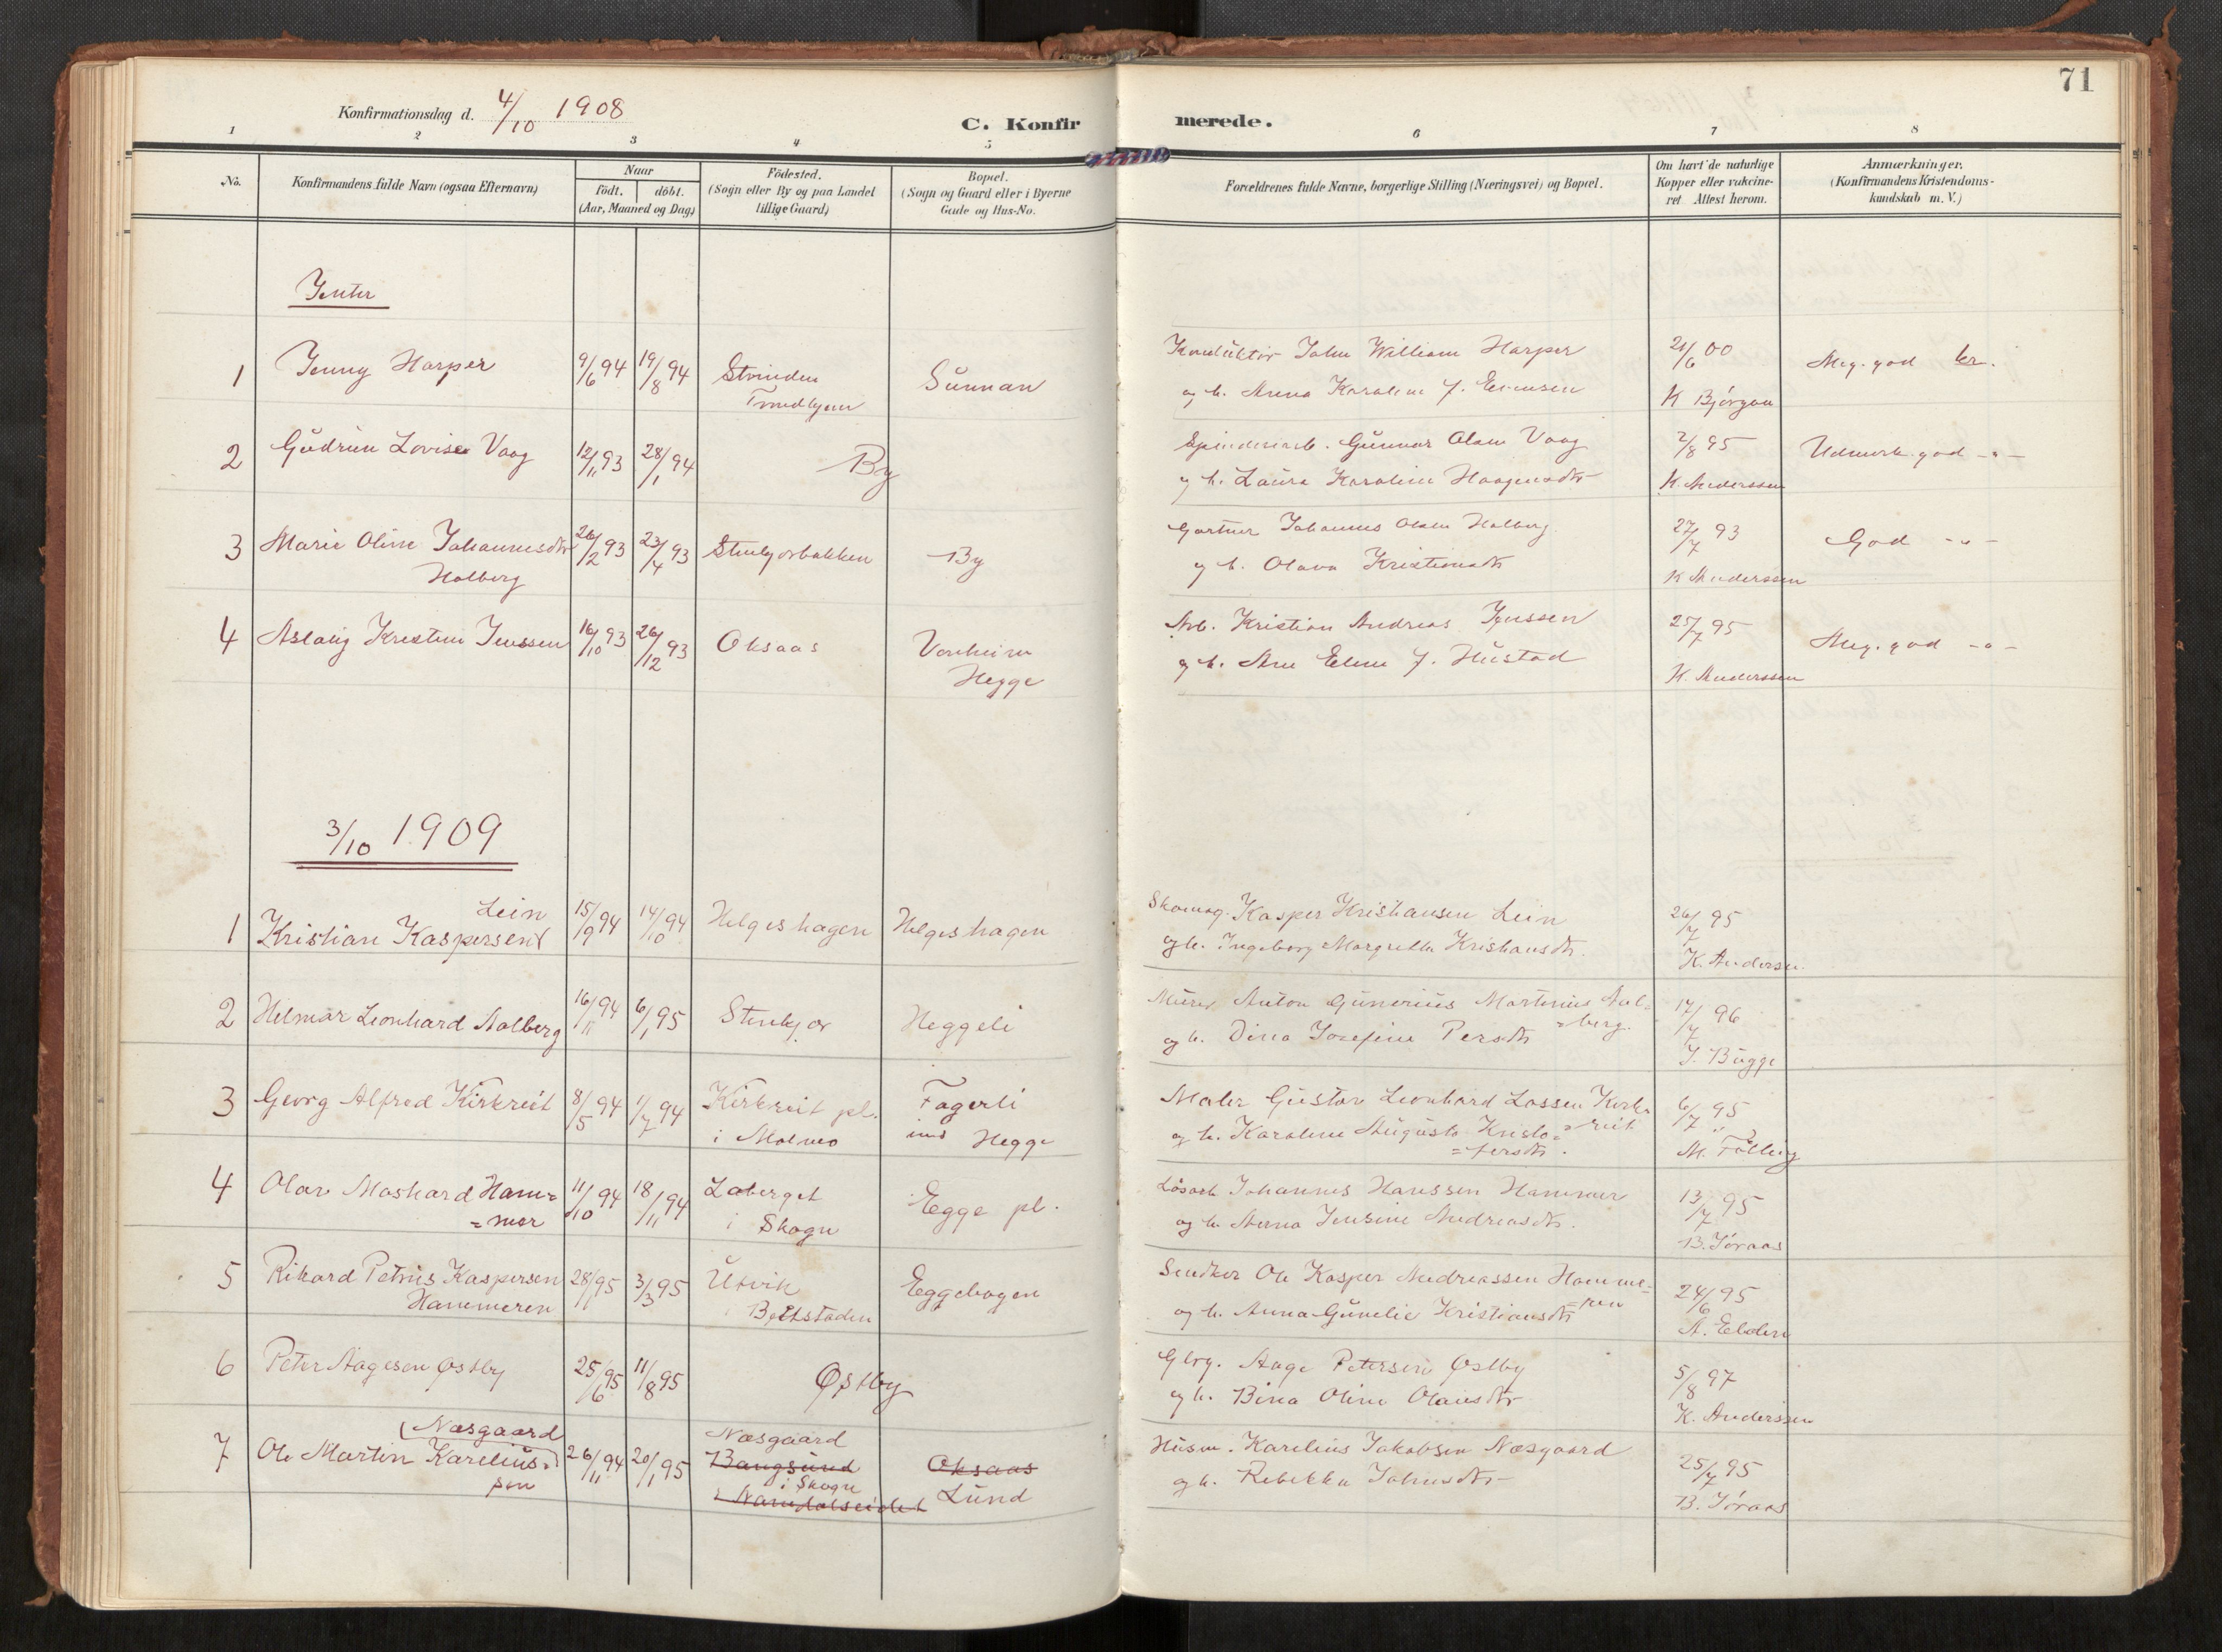 71
Konfirmationsdag d. 4/10 1908
C. Konfirmerede.
1 2 3 4 5 6 7 8
No.
Konfirmandens fulde Navn (ogsaa Efternavn)
Naar
födt. döbt.
(Aar, Maaned og Dag)
Födested.
(Sogn eller By og paa Landet
tillige Gaard)
Bopæl.
(Sogn og Gaard eller i Byerne
Gade og Hus-No.
Forældrenes fulde Navne, borgerlige Stilling (Næringsvei) og Bopæl.
Om havt de naturlige
Kopper eller vakcine-
ret Attest herom.
Anmærkninger.
(Konfirmandens Kristendoms-
kundskab m. V.)
Jenter
1 Jenny Harper 9/6 94 19/8 94 Strinden Sunnan Konduktör John William Harper 21/6 00 Meg. god kr.
Trondhjem og h. Anna Karoline f. K Bjórgan
2 Gudrun Lovise Vaag 12/11 93 28/1 94 By Spindereiarb. Gunnar Olsen Vaag 2/8 95 Udmerk. god -"-
og h. Laura Karoline Haagensdtr K. Anderssen
3 Marie Oline Johannesdtr 26/2 93 23/4 93 Stenkjærbakken By Gartner Johannes Olsen Holberg 27/7 93 God -"-
Holberg og h. Olava Kristiansdtr K Anderssen
4 Aslaug Kristine Jenssen 16/10 93 26/12 93 Oksaas Vonheim Arb. Kristian Andreas Jenssen 25/7 95 Meg. god -"-
Hegge og h. Ane Eline f. Hustad K. Anderssen
3/10 1909
Lein
1 Kristian Kaspersen 15/9 94 14/10 94 Helgeshagen Helgeshagen Skomag. Kasper Kristiansen Lein 26/7 95
og h. Ingeborg Margrethe Kristiansdtr. K. Andersen
2 Helmar Leonhard Aalberg 16/11 94 6/1 95 Stenkjær Heggeli Murer Anton Gunerius Martinius Aal-
=berg. 17/7 96
og h. Dina Josefine Persdtr J. Bugge
3 Georg Alfred Kirkreit 8/5 94 1/7 94 Kirkreit pl. Fagerli Maler Gustav Leonhard Lassen Kirk=
=reit 6/7 95
i Malmo Hegge og h. Karoline Augusta Kristo=
=fersdtr. M. Følling
4 Olav Maskard Ham= 11/10 94 18/11 94 Laberget Egge pl. Løsarb Johannes Hanssen Hammer 13/7 95
=mer i Skogn og h. Anna Jensine Andreasdtr. B. Jóraas
5 Rikard Petrus Kaspersen 28/1 95 3/3 95 Utvik Eggebogen Ole Kasper Andreassen Hamme=
=ren 24/6 95
Hammeren i Beitstaden og h. Anna Gunelie Kristiansdtr A. Elden
6 Peter Aagesen Østby 25/6 95 11/8 95 Østby Gbrg. Aage Petersen Østby 5/8 97
og h. Bina Oline Olausdtr K. Anderssen
Næsgaard
7 Ole Martin Karelius= 26/11 94 20/1 95 Næsgaard Oksaas Husm. Karelius Jakobsen Næsgaard 25/7 95
sen Bangsund Lund og h. Rebekka Johnsdtr B. Jóraas
i Skogn
i Namdalseidet